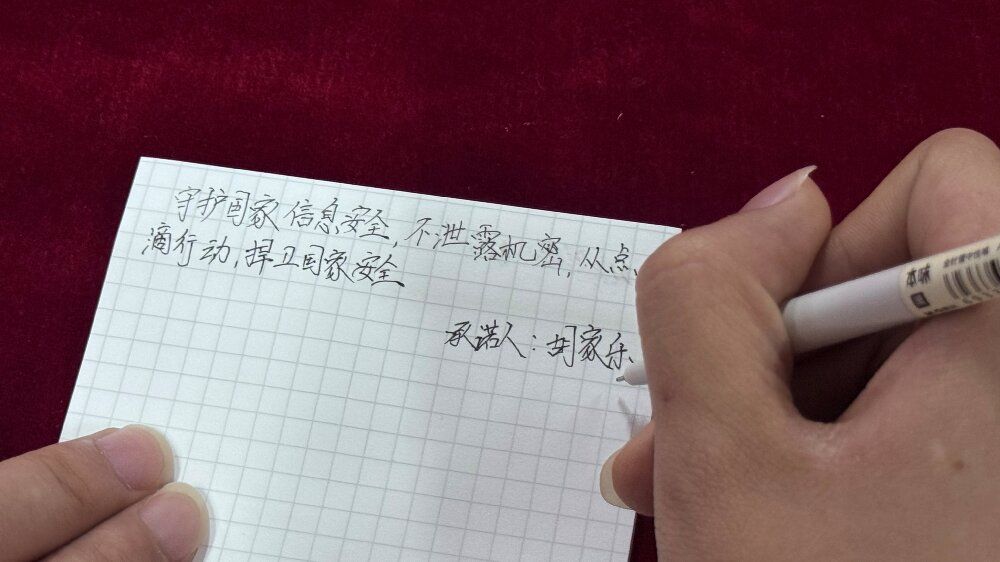 守护国家信息安全,不泄露机密,从点
滴行动,捍卫国家安全
承诺人:胡家乐
本味